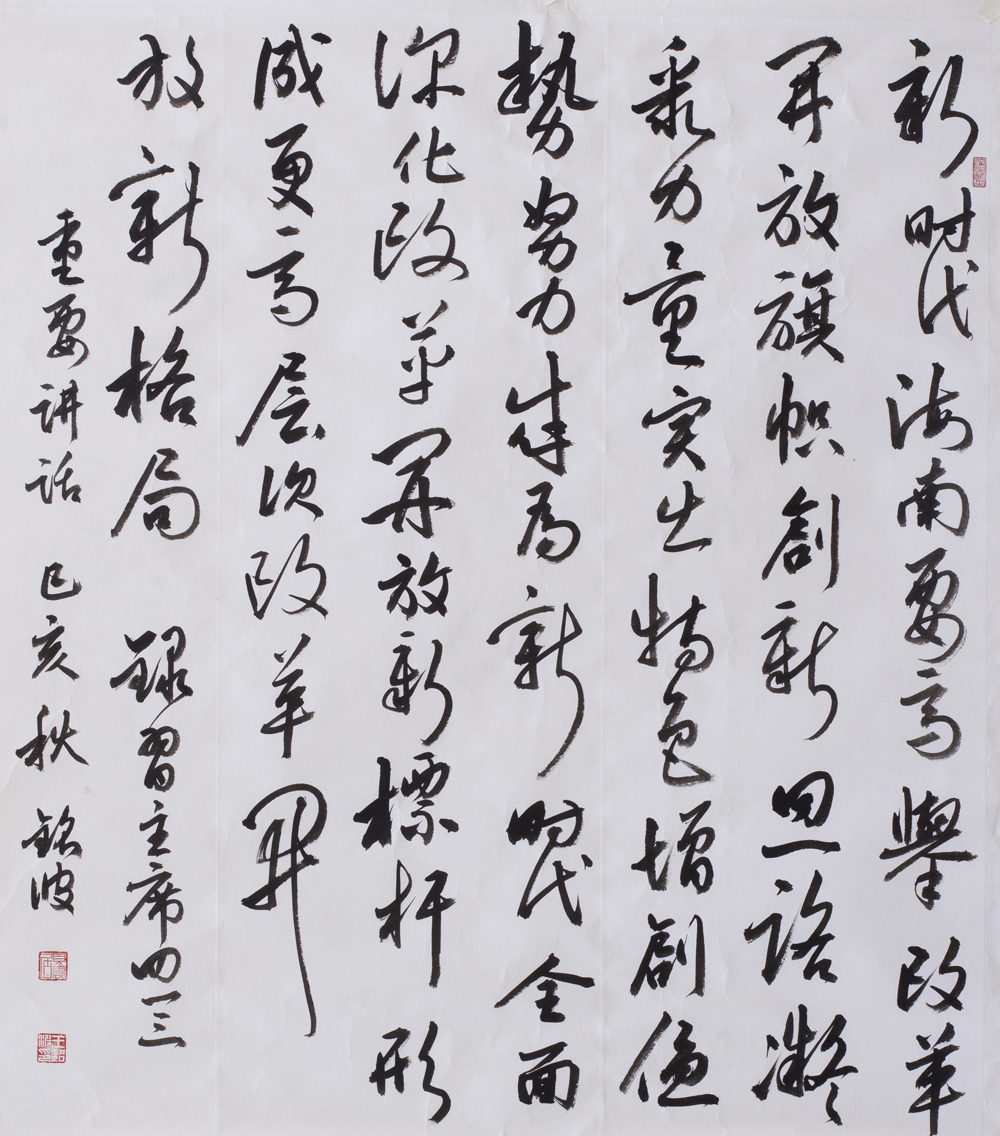 新时代海南要高舉改革
开放旗帜創新思路凝
聚力量突出特色增創優
勢努力成為新时代全面
深化改革开放新標杆形
成更高层次改革開
放新格局 録習主席四一三
重要讲话 己亥秋 銘波